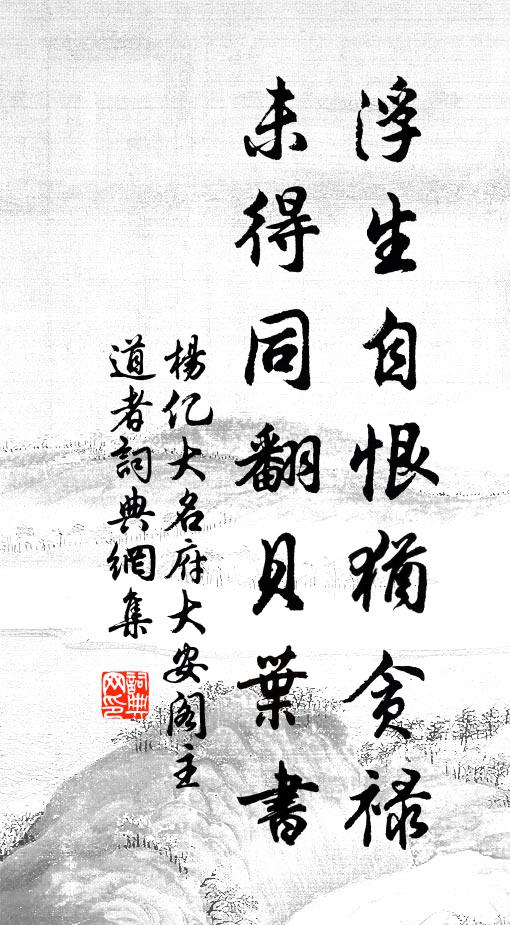 浮生自恨猶貪禄
未得同翻貝葉書
楊亿大名府大安阁主
道者詞典網集
詞典网印